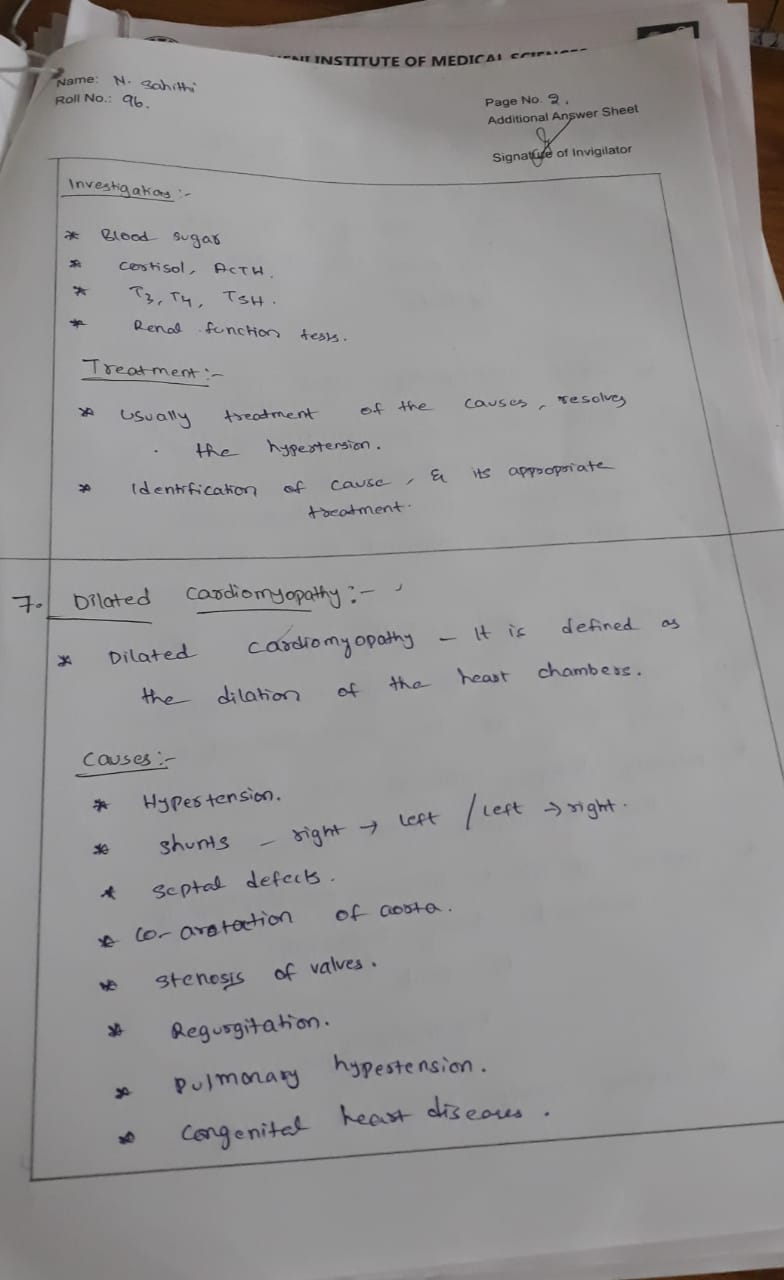 INSTITUTE OF MEDICAL
Name: N. Sahithi
Roll No.: 96.
Page No. 2.
Additional Answer Sheet
Signature of Invigilator
Investigations :-
* Blood sugar
* Cortisol, ACTH.
* T3, T4, TSH.
* Renal function tests.
Treatment :-
* Usually treatment of the causes, resolves
the hypertension.
* Identification of cause, & its appropriate
treatment.
7. Dilated Cardiomyopathy :-
* Dilated cardiomyopathy - It is defined as
the dilation of the heart chambers.
Causes :-
* Hypertension.
* shunts - right → left / left → right.
* septal defects.
* Co-arotaction of aorta.
* stenosis of valves.
* Regurgitation.
* Pulmonary hypertension.
* Congenital heart diseases.